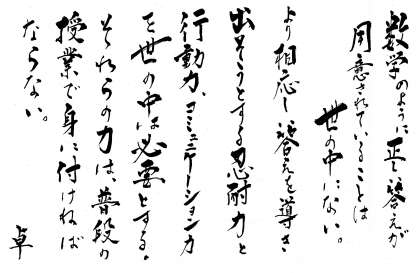 数学のように正答えが
用意されていることは
世の中にない。
より相応し答えを導き
出そうとする忍耐力と
行動力、コミュニケーション力
を世の中は必要とする。
それらの力は、普段の
授業で身に付けねば
ならない。
卓